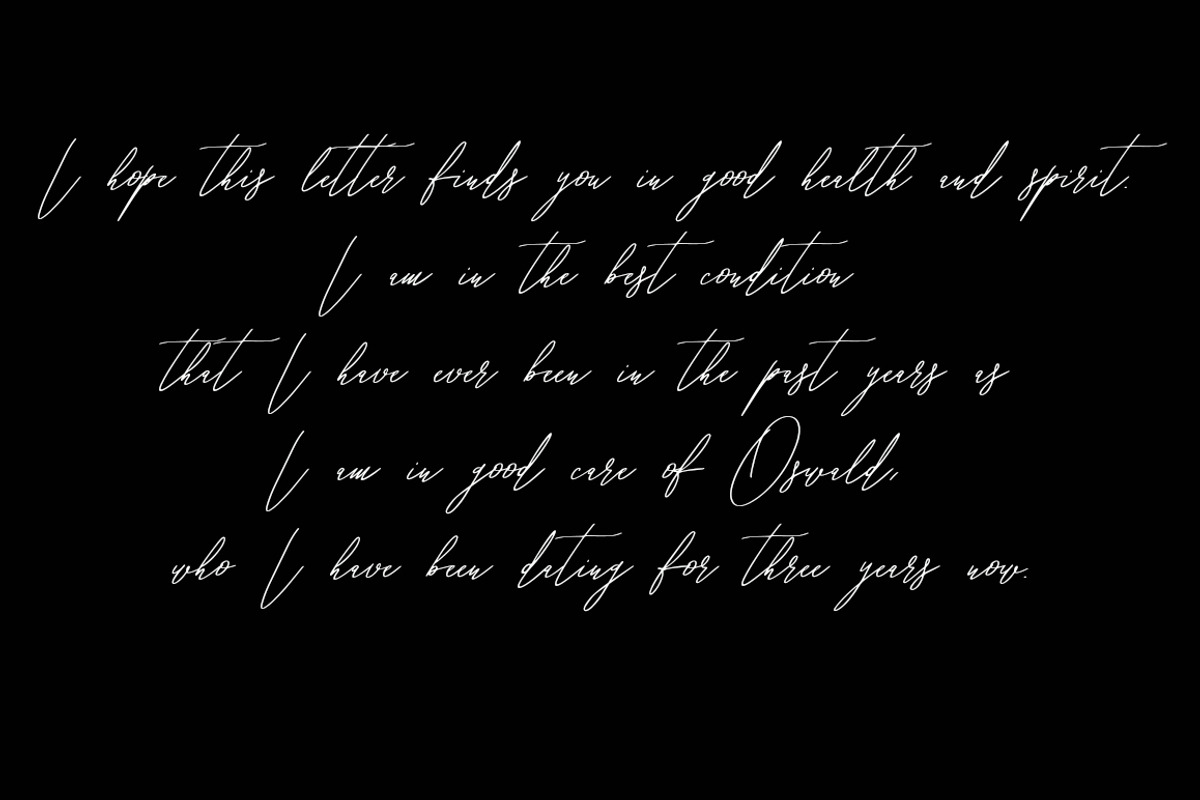 I hope this letter finds you in good health and spirit.
I am in the best condition
that I have ever been in the past years as
I am in good care of Oswald,
who I have been dating for three years now.